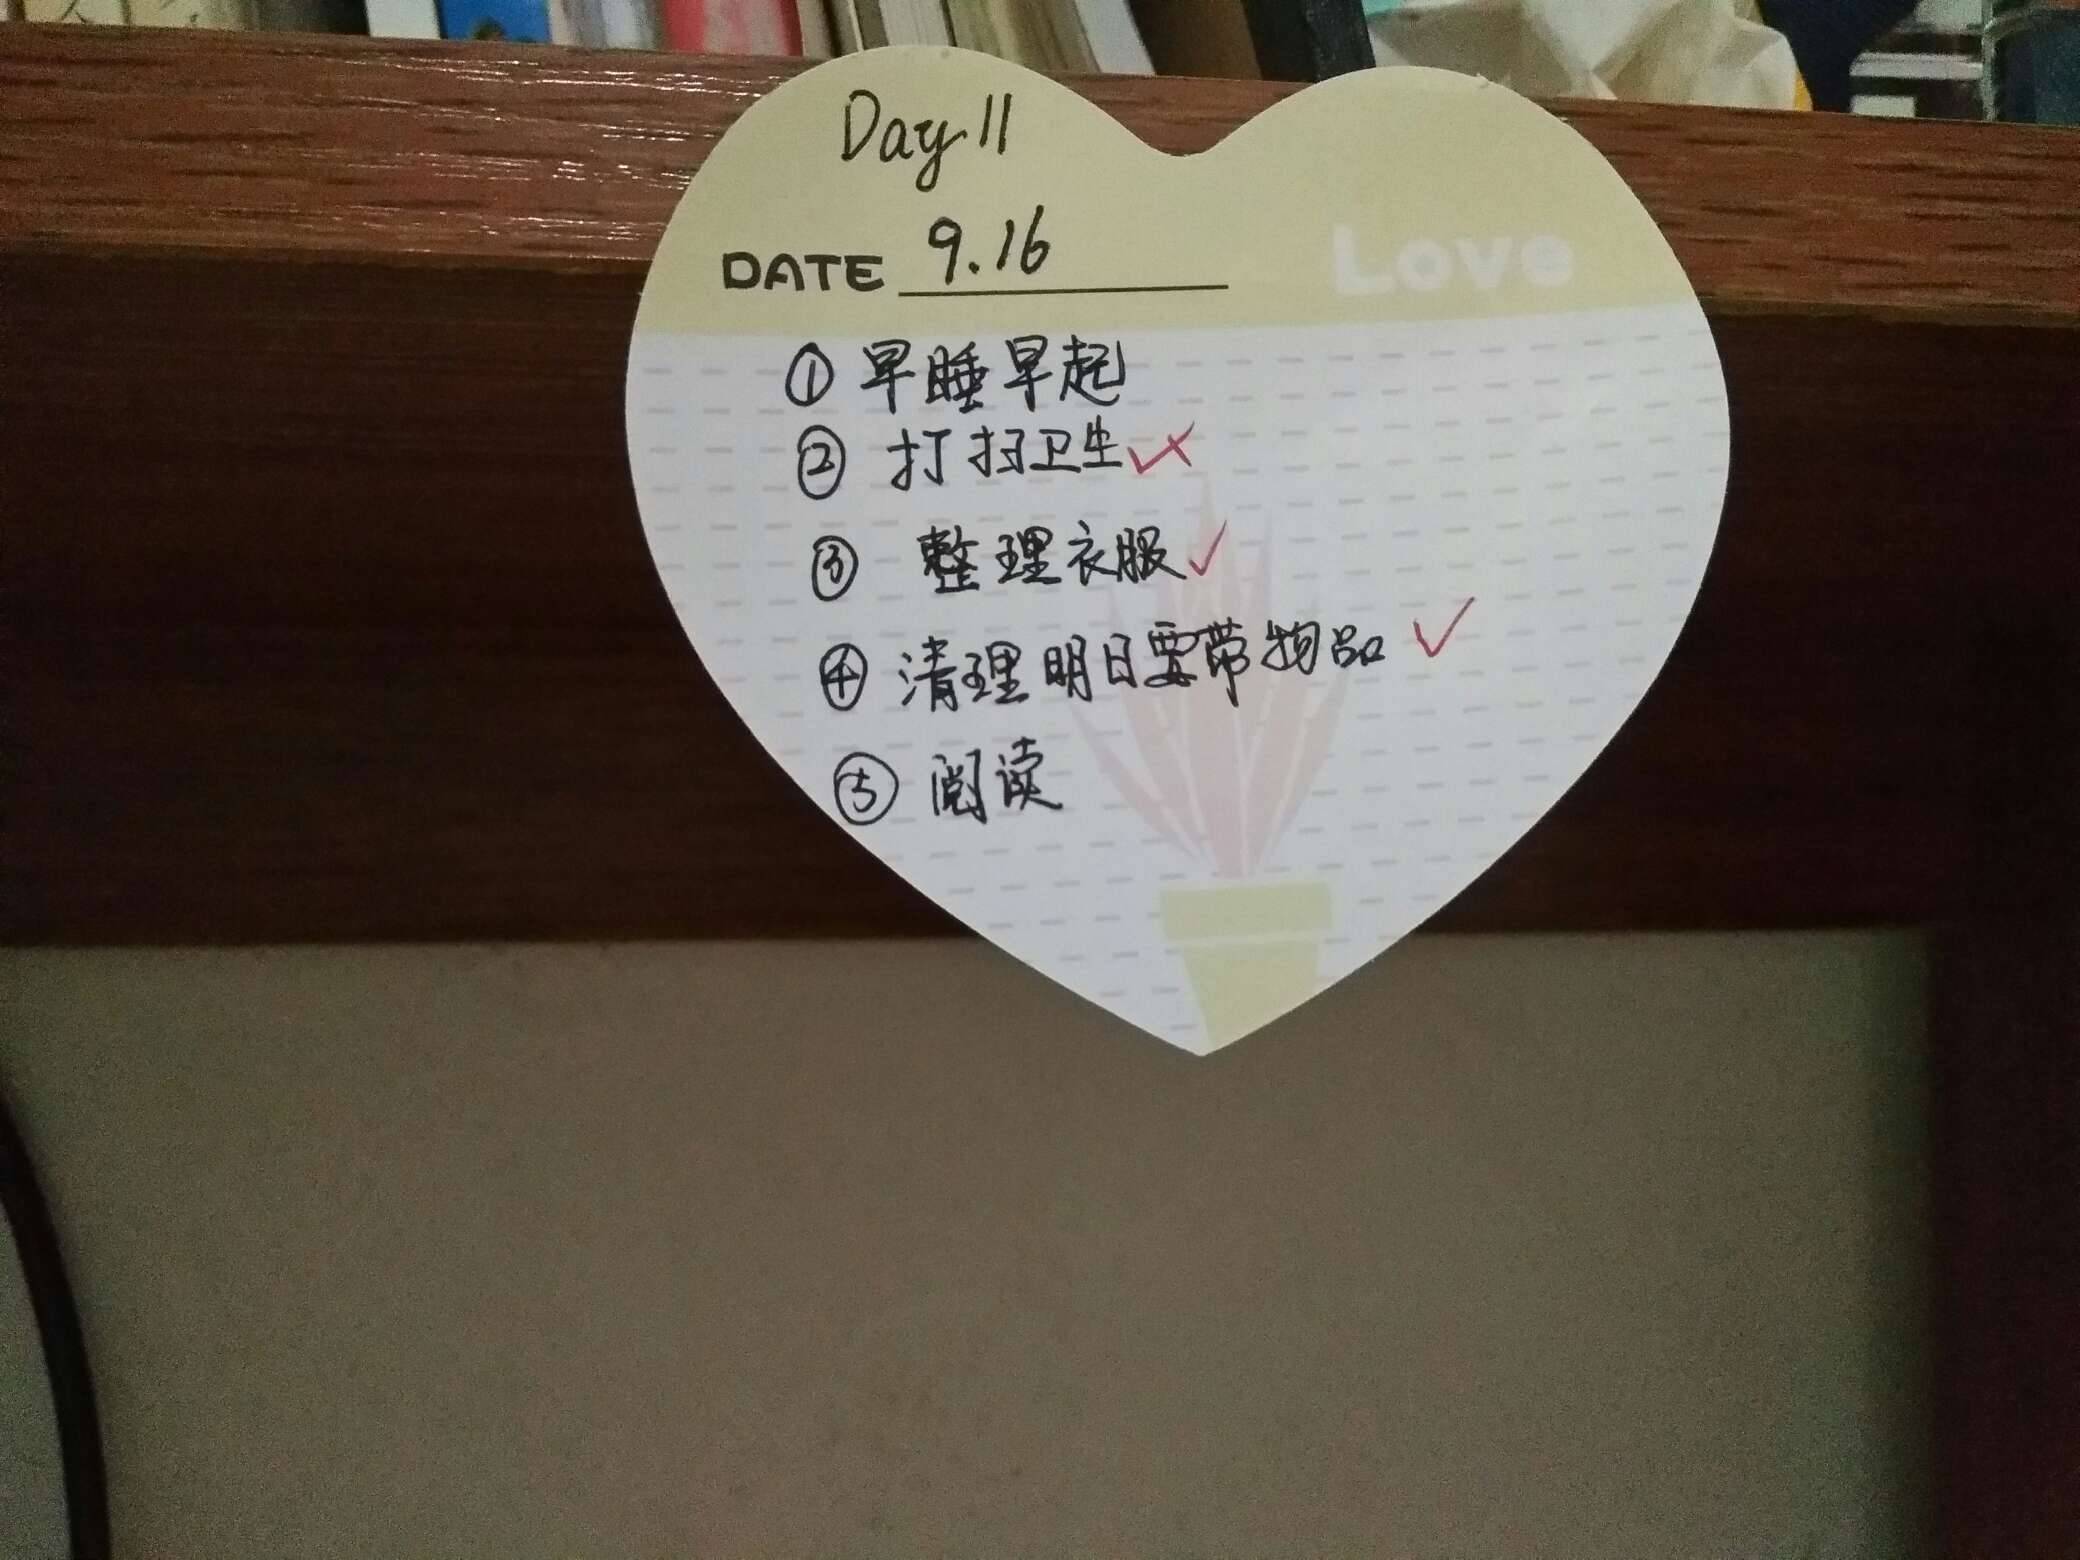 Day 11
DATE 9.16
Love
① 早睡早起
② 打扫卫生
③ 整理衣服✓
④ 清理明日要带物品 ✓
⑤ 阅读